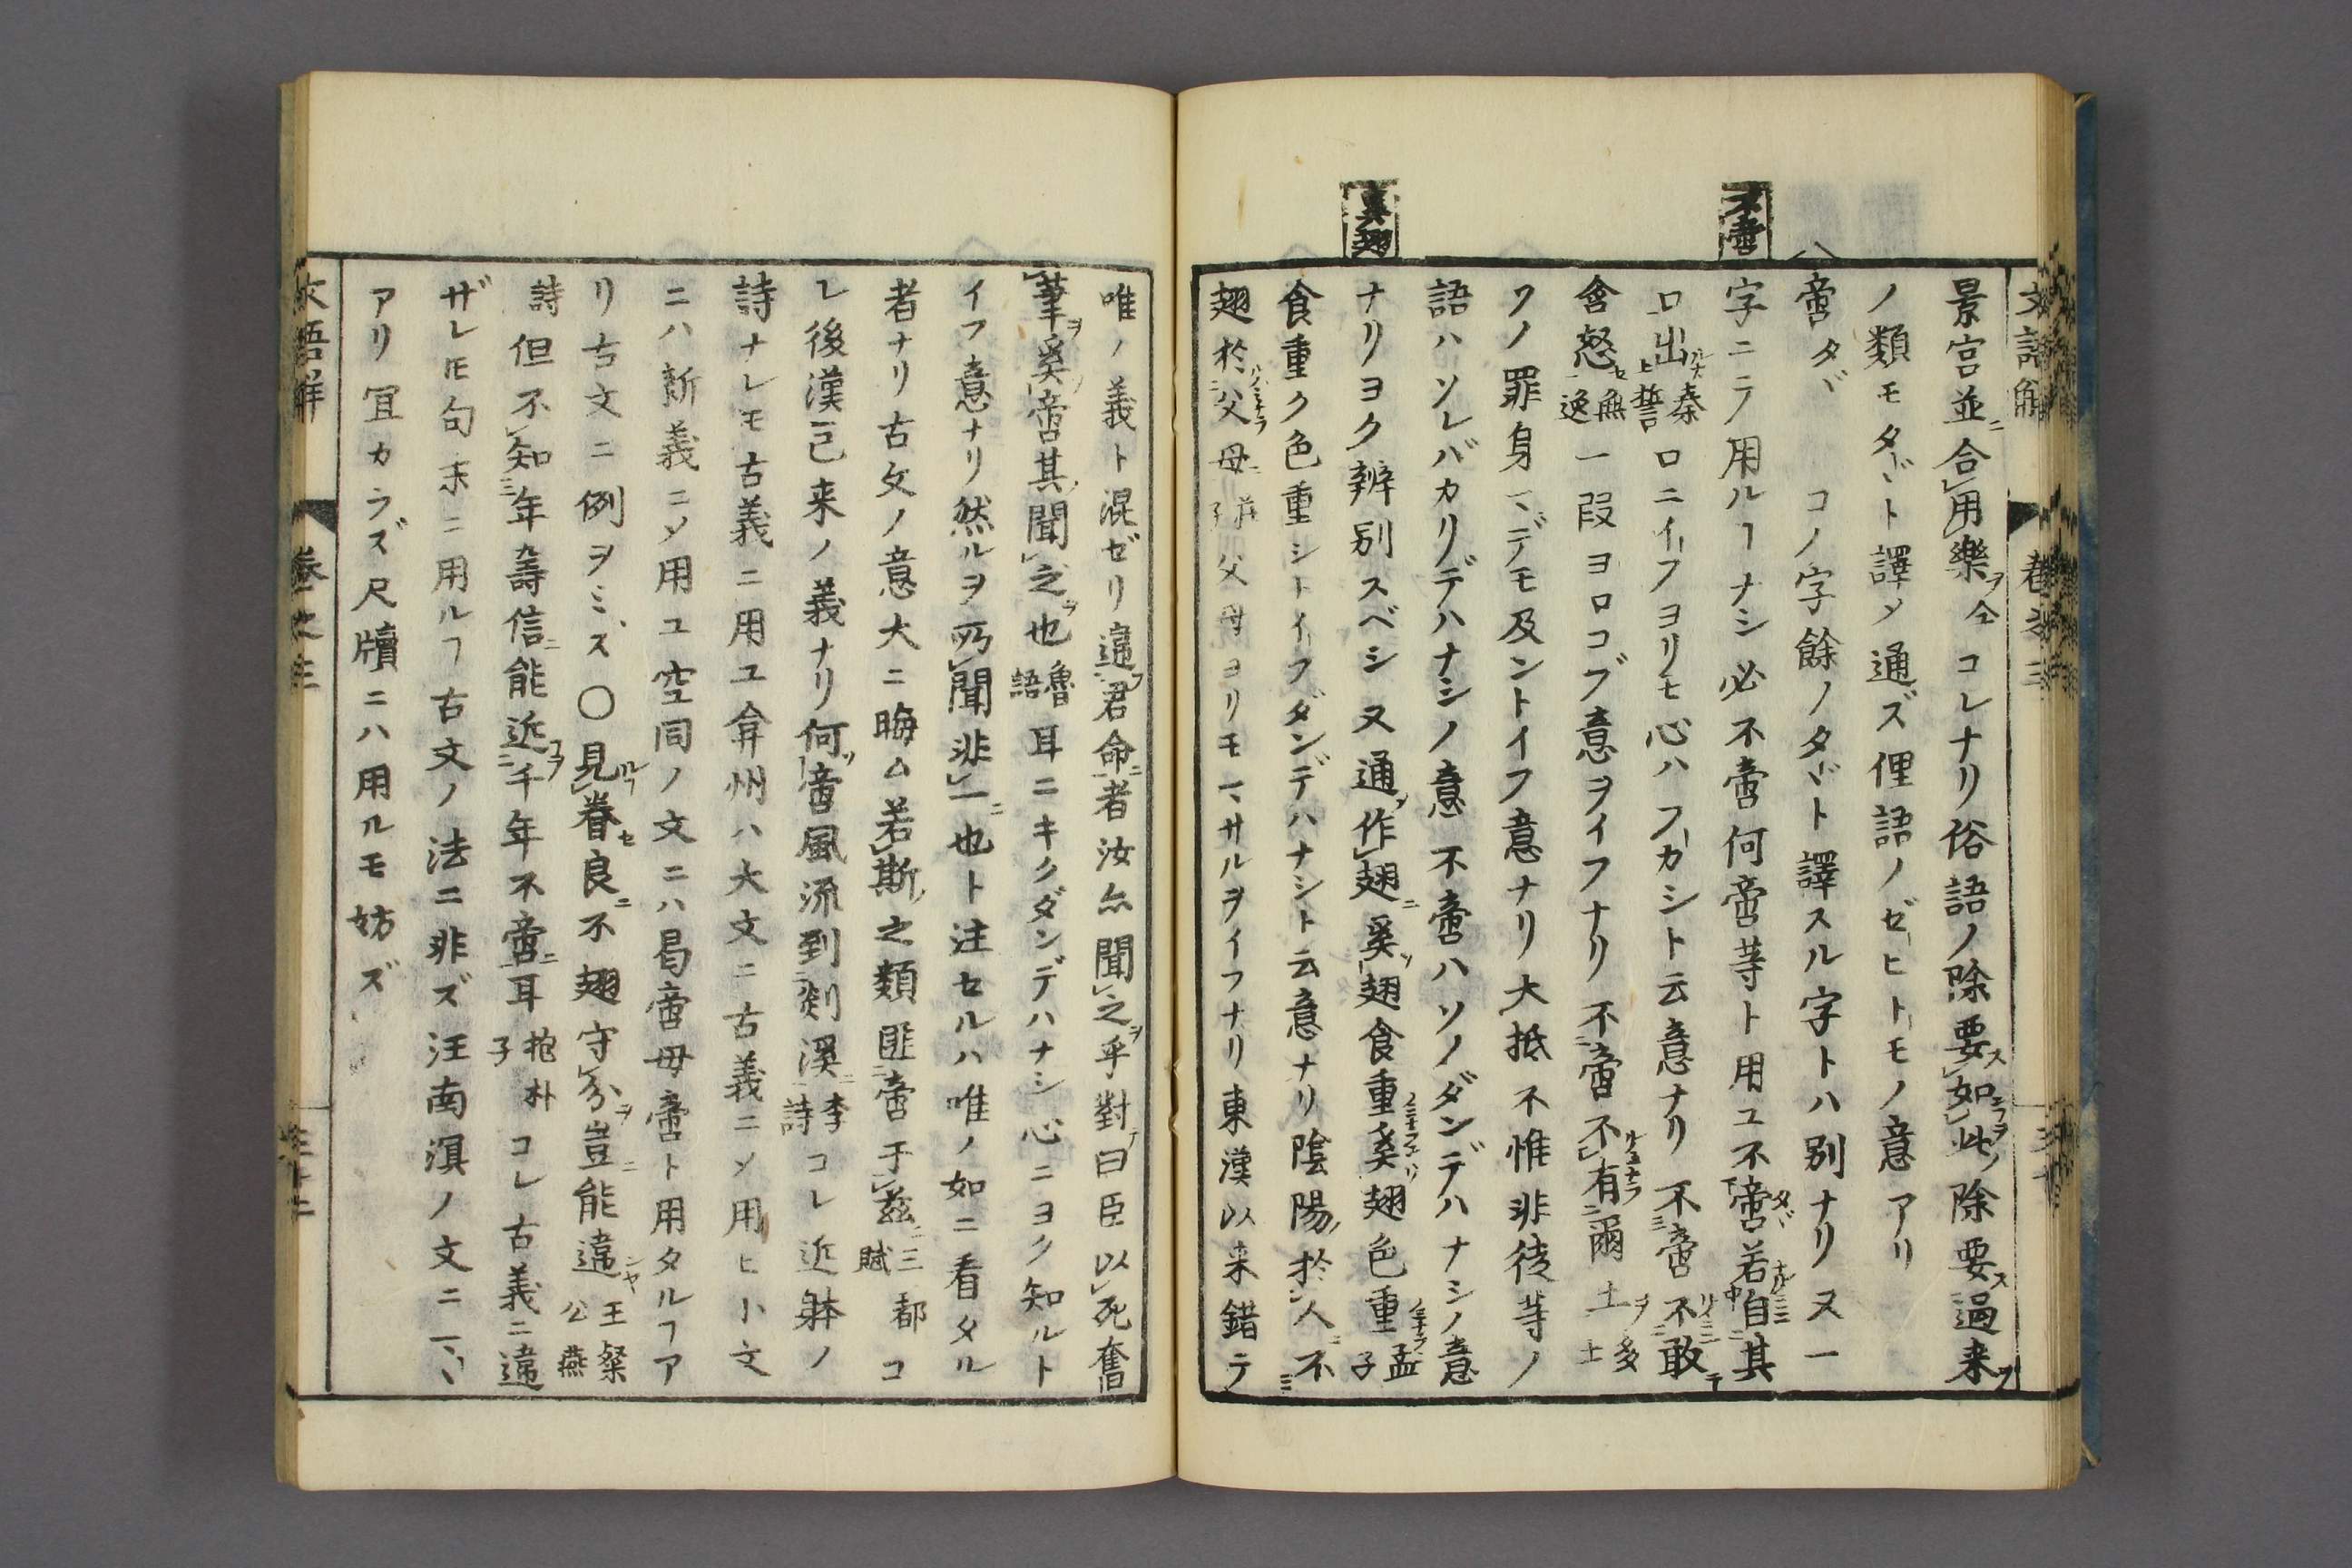 不啻
奚翅
文語解
卷之三
景宮並合用樂ヲ今 コレナリ俗語ノ除要如此ノ除要過来
ノ類モタヾト譯メ通ズ俚語ノゼヒトモノ意アリ
啻タヾ コノ字餘ノタヾト譯スル字トハ別ナリ又一
字ニテ用ルヿナシ必不啻何啻等ト用ユ不啻若自其
口出秦誓 口ニイフヨリモ心ハフカシト云意ナリ 不啻不敢
含怒無逸 一段ヨロコブ意ヲイフナリ 不啻不有爾土多士
ワノ罪身マデモ及ントイフ意ナリ大抵不惟非徒等ノ
語ハソレバカリデハナシノ意不啻ハソノダンデハナシノ意
ナリヨク辨別スベシ又通作翅奚翅食重奚翅色重孟子
食重ク色重シトイフダンデハナシト云意ナリ陰陽於人不
翅於父母莊子 父母ヨリモマサルヲイフナリ東漢以来錯テ
唯ノ義ト混ゼリ違君命者汝亦聞之乎對曰臣以死奮
筆奚啻其聞之也魯語 耳ニキクダンデハナシ心ニヨク知ルト
イフ意ナリ然ルヲ所聞非一也ト注セルハ唯ノ如ニ看タル
者ナリ古文ノ意大ニ晦ム若斯之類匪啻于茲三都賦 コ
レ後漢已来ノ義ナリ何啻風流到剡溪李詩 コレ近躰ノ
詩ナレモ古義ニ用ユ弇州ハ大文ニ古義ニメ用ヒ小文
ニハ新義ニメ用ユ空同ノ文ニハ曷啻毋啻ト用タルヿア
リ古文ニ例ヲミズ〇見眷良不翅守分豈能違王粲公燕
詩 但不知年壽信能近千年不啻耳抱朴子 コレ古義ニ違
ザレ𪜈句末ニ用ルヿ古文ノ法ニ非ズ汪南溟ノ文ニマヽ
アリ宜カラズ尺牘ニハ用ルモ妨ズ
文語解
卷之三